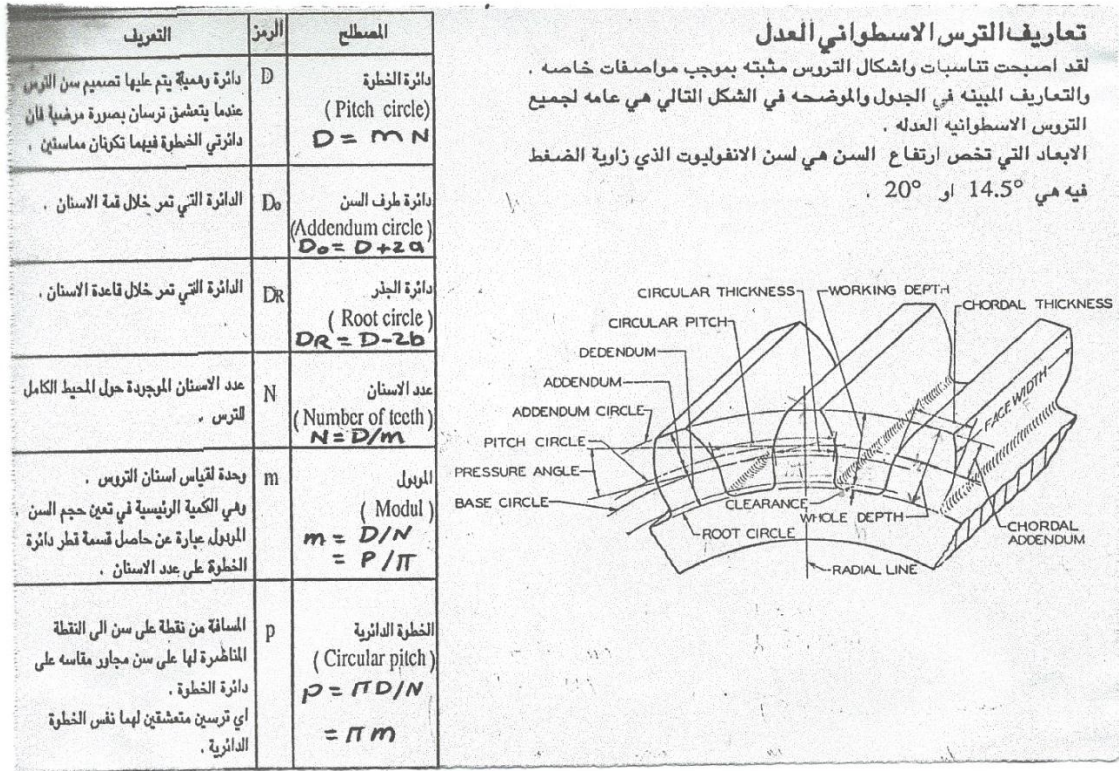 تعاريف الترس الاسطواني العدل
لقد اصبحت تناسبات واشكال التروس مثبته بموجب مواصفات خاصه .
والتعاريف المبينه في الجدول والموضحه في الشكل التالي هي عامه لجميع
التروس الاسطوانيه العدله .
الابعاد التي تخص ارتفاع السن هي لسن الانفوليوت الذي زاوية الضغط
فيه هي 14.5° او 20° .
CIRCULAR THICKNESS
WORKING DEPTH
CHORDAL THICKNESS
CIRCULAR PITCH
DEDENDUM
ADDENDUM
FACE WIDTH
ADDENDUM CIRCLE
PITCH CIRCLE
PRESSURE ANGLE
BASE CIRCLE
CLEARANCE
WHOLE DEPTH
ROOT CIRCLE
CHORDAL
ADDENDUM
RADIAL LINE
المصطلح الرمز التعريف
دائرة الخطوة
(Pitch circle)
D = m N
D
دائرة وهمية يتم عليها تصميم سن الترس
عندما يتعشق ترسان بصورة مرضية فان
دائرتي الخطوة فيهما تكونان مماستين .
دائرة طرف السن
(Addendum circle)
Do = D + 2a
Do
الدائرة التي تمر خلال قمة الاسنان .
دائرة الجذر
(Root circle)
DR = D - 2b
DR
الدائرة التي تمر خلال قاعدة الاسنان .
عدد الاسنان
(Number of teeth)
N = D/m
N
عدد الاسنان الموجودة حول المحيط الكامل
للترس .
الموديول
(Modul)
m = D/N
= P/π
m
وحدة لقياس اسنان التروس .
وهي الكمية الرئيسية في تعين حجم السن .
الموديول عبارة عن حاصل قسمة قطر دائرة
الخطوة على عدد الاسنان .
الخطوة الدائرية
(Circular pitch)
p = πD/N
= πm
p
المسافة من نقطة على سن الى النقطة
المناظرة لها على سن مجاور مقاسه على
دائرة الخطوة .
اي ترسين متعشقين لهما نفس الخطوة
الدائرية .